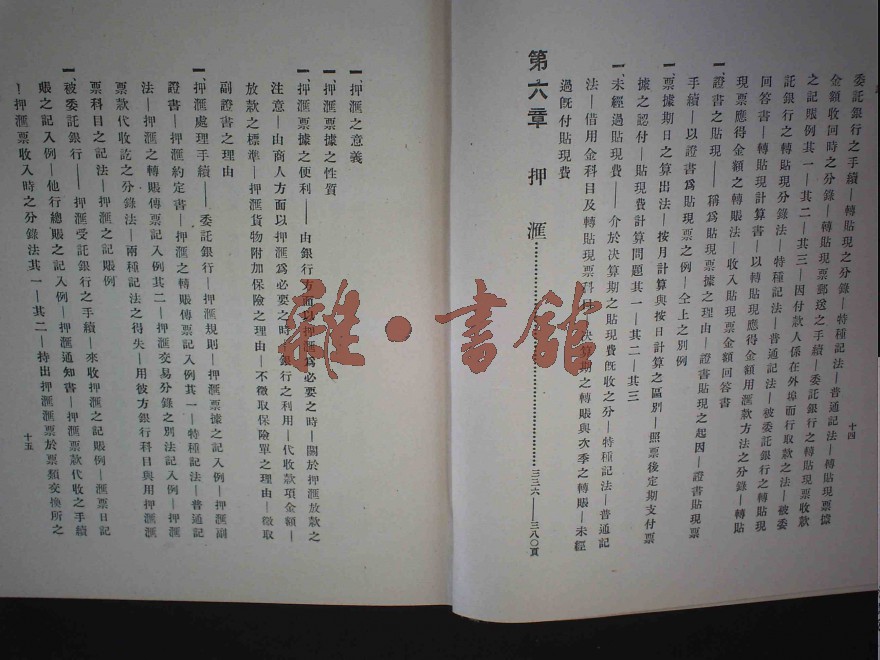 委託銀行之手續—轉貼現之分錄—特種記法—普通記法—轉貼現票據
金額收回時之分錄—轉貼現票郵送之手續—委託銀行之轉貼現票收款
之記賬例其一—其二—其三—因付款人係在外埠而行取款之法—被委
託銀行之轉貼現分錄法—特種記法—普通記法—被委託銀行之轉貼現
回答書—轉貼現計算書—以轉貼現應得金額用滙款方法之分錄—轉貼
現票應得金額之轉賬法—收入貼現票金額回答書
一、證書之貼現——稱爲貼現票據之理由—證書貼現之起因—證書貼現票
手續—以證書爲貼現票之例—仝上之別例
一、票據期日之算出法—按月計算與按日計算之區別—照票後定期支付票
據之認付—貼現費計算問題其一—其二—其三
一、未經過貼現費——介於決算期之貼現費旣收之分—特種記法—普通記
法—借用金科目及轉貼現票科目—決算期之轉賬與次季之轉賬—未經
過旣付貼現費
第六章 押滙……三三六——三八〇頁
十四
一、押滙之意義
一、押滙票據之性質
一、押滙票據之便利——由銀行方面以押滙爲必要之時—關於押滙放款之
注意—由商人方面以押滙爲必要之時—銀行之利用—代收款項金額—
放款之標準—押滙貨物附加保險之理由—不徵取保險單之理由—徵取
副證書之理由
一、押滙處理手續——委託銀行—押滙規則—押滙票據之記入例—押滙副
證書—押滙約定書—押滙之轉賬傳票記入例其一—特種記法—普通記
法—押滙之轉賬傳票記入例其二—押滙交易分錄之別法記入例—押滙
票款代收訖之分錄法—兩種記法之得失—用彼方銀行科目與用押滙滙
票科目之記法—押滙之記賬例
一、被委託銀行——押滙受託銀行之手續—來收押滙之記賬例—滙票日記
賬之記入例—他行總賬之記入例—押滙通知書—押滙票款代收之手續
—押滙票收入時之分錄法其一—其二—持出押滙滙票於票類交換所之
十五
雜·書館